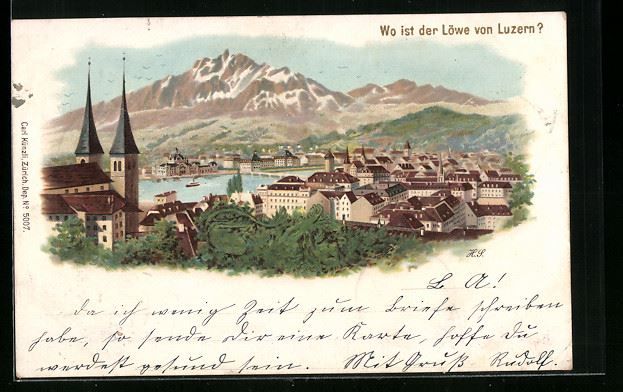 Wo ist der Löwe von Luzern?
Carl Künzli, Zürich. Dep. Nº 5007.
H.S.
L. A!
da ich wenig Zeit zum Briefe schreiben
habe, so sende Dir eine Karte, hoffe Du
werdest gesund sein. Mit Gruß Rudolf.